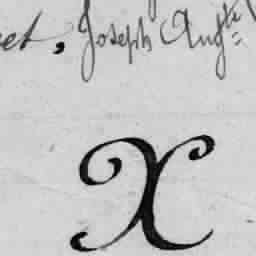 et, Joseph Aug.te
X